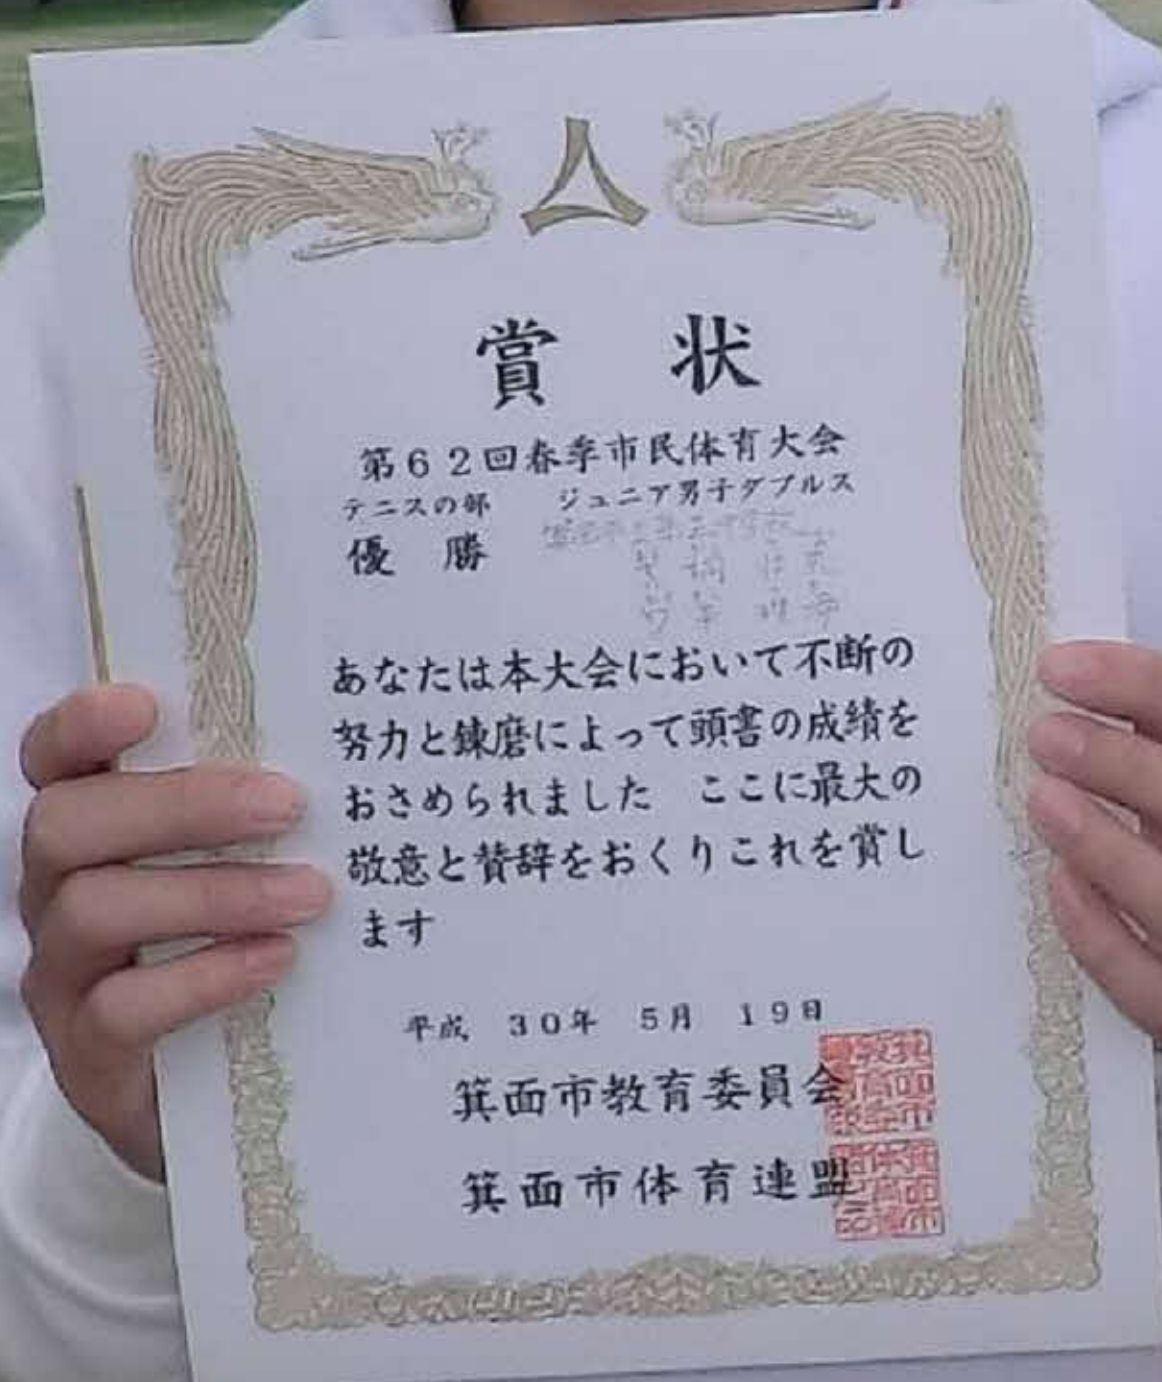 賞 状
第62回春季市民体育大会
テニスの部 ジュニア男子ダブルス
優 勝
あなたは本大会において不断の
努力と錬磨によって頭書の成績を
おさめられました ここに最大の
敬意と賛辞をおくりこれを賞し
ます
平成 30年 5月 19日
箕面市教育委員会
箕面市体育連盟